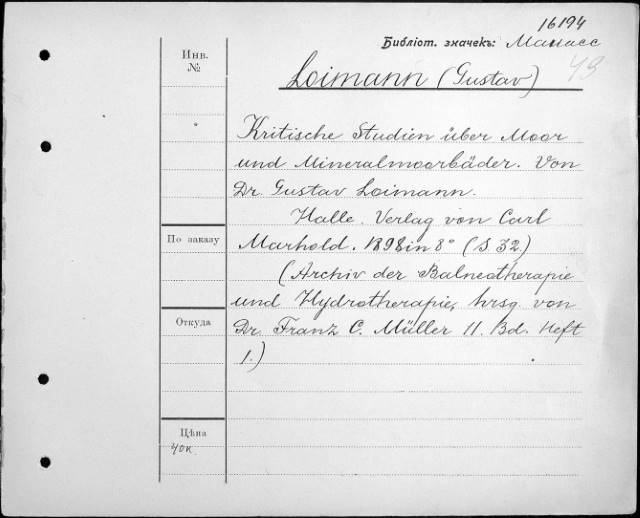 16194
Библіот. значекъ: Манасс
49
Инв. №
Loimann (Gustav)
Kritische Studien über Moor
und Mineralmoorbäder. Von
Dr. Gustav Loimann.
Halle. Verlag von Carl
По заказу
Marhold. 1898 in 8° (S 32.)
(Archiv der Balneotherapie
und Hydrotherapie, hrsg. von
Откуда
Dr. Franz C. Müller II. Bd. Heft
1.)
Цѣна
40к